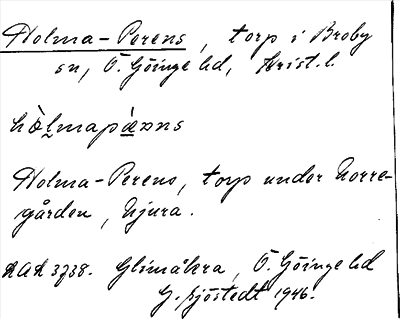 Holma-Perens, torp i Broby
sn, Ö. Göinge hd, Krist. l.
hò̰lmapæ̀ɔns
Holma-Perens, torp under Norre-
gården, Njura.
AAA 3738. Glimåkra, Ö. Göinge hd
G. Sjöstedt 1946.